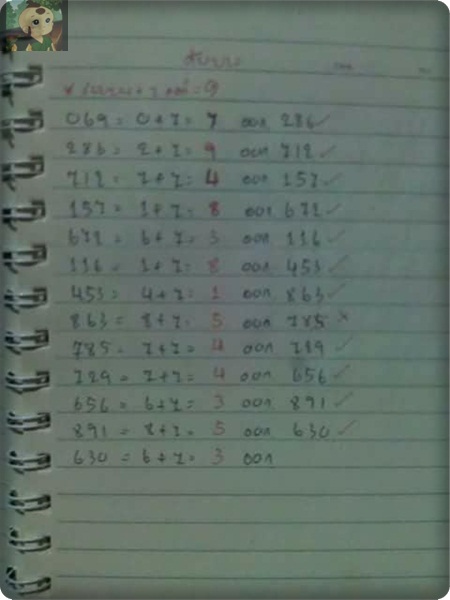 069 = 0+7 = 7 ออก 286 ✓
286 = 2+7 = 9 ออก 712 ✓
712 = 7+7 = 4 ออก 157 ✓
157 = 1+7 = 8 ออก 672 ✓
672 = 6+7 = 3 ออก 116 ✓
116 = 1+7 = 8 ออก 453 ✓
453 = 4+7 = 1 ออก 863 ✓
863 = 8+7 = 5 ออก 785 ✗
785 = 7+7 = 4 ออก 729 ✓
729 = 7+7 = 4 ออก 656 ✓
656 = 6+7 = 3 ออก 891 ✓
891 = 8+7 = 5 ออก 630 ✓
630 = 6+7 = 3 ออก